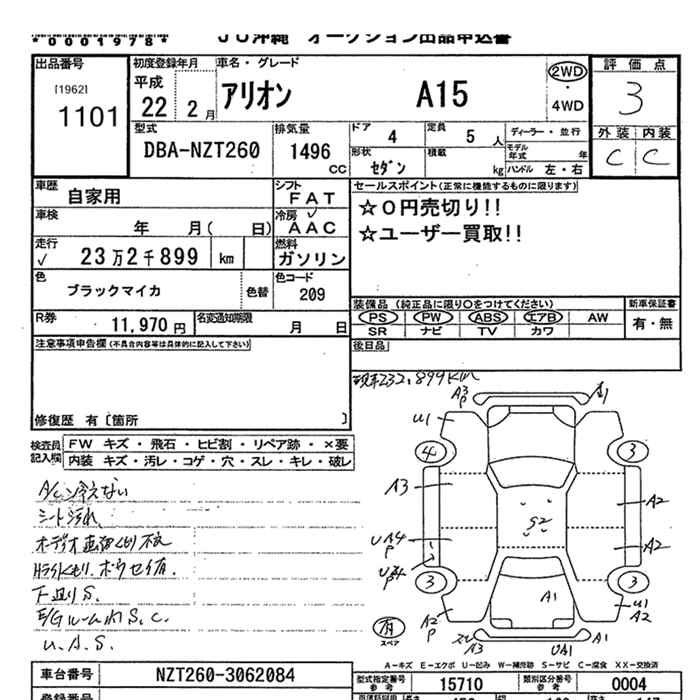 *0001978*
JU沖縄 オークション出品申込書
出品番号
[1962]
1101
初度登録年月
平成
22 2月
車名・グレード
アリオン A15
2WD
・
4WD
評価点
3
外装 内装
C C
型式
DBA-NZT260
排気量
1496
CC
ドア 4
定員 5 人
ディーラー・並行
モデル年式 年
形状 セダン
積載 kg
ハンドル 左・右
車歴
自家用
シフト
FAT
車検
年 月( 日)
冷房 ✓
AAC
走行
✓ 23万2千899 km
燃料
ガソリン
色
ブラックマイカ
色替
色コード
209
R券
11,970 円
名変通知期限
月 日
セールスポイント(正常に機能するものに限ります)
☆0円売切り!!
☆ユーザー買取!!
装備品 (純正品に限り○をつけてください)
PS PW ABS エアB AW
SR ナビ TV カワ
新車保証書
有・無
後日品
注意事項申告欄(不具合内容等は具体的に記入して下さい)
修復歴 有〔箇所 〕
検査員記入欄
FW キズ・飛石・ヒビ割・リペア跡・×要
内装 キズ・汚レ・コゲ・穴・スレ・キレ・破レ
現車232,899km
A/C冷えない
シート汚れ
下廻りS.
E/GルームS.C.
U.A.S.
A3
P
A1
U1
4
3
A3
A2
S2
UA4
P
A2
3
3
A1
U1
A2
A2
P
A3
UA1
A1
有
スペア
A-キズ E-エクボ U-凹ミ W-補修跡 S-サビ C-腐食 XX-交換済
車台番号
NZT260-3062084
型式指定番号
参考
15710
類別区分番号
参考
0004
登録番号